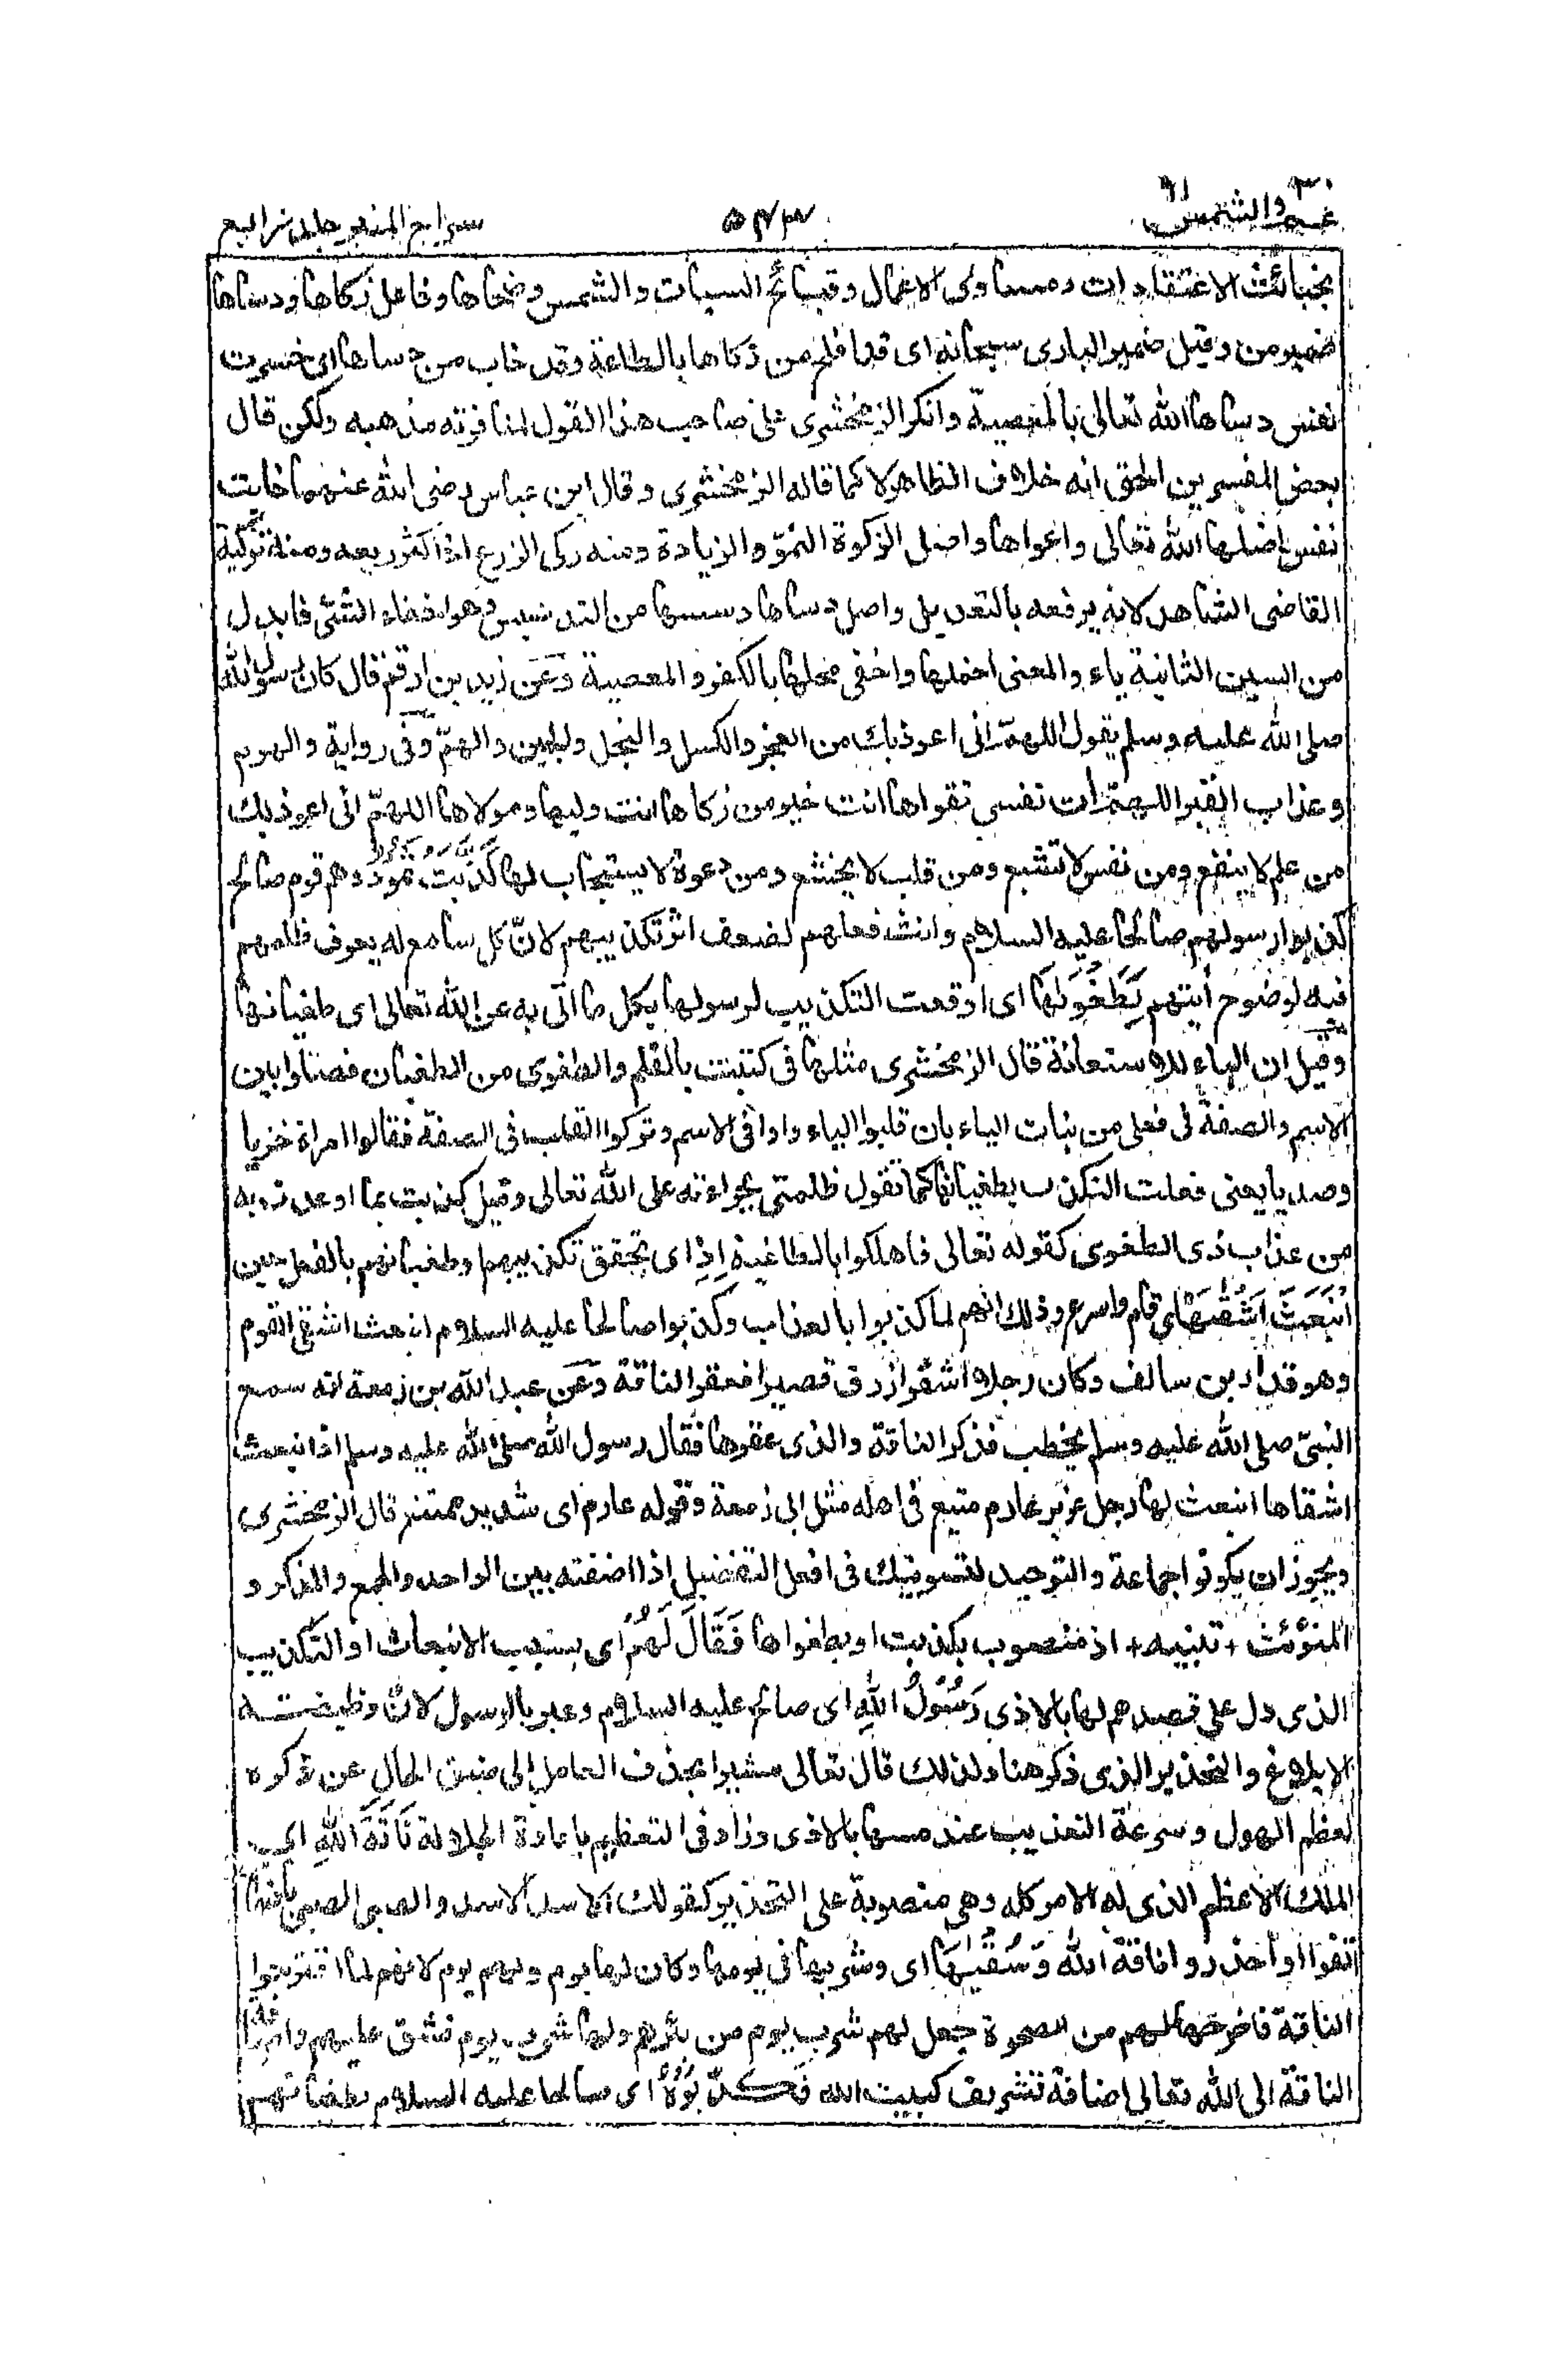 عم ٣٠ والشمس ٩١
٥٤٣
سراج المنير جلد رابع
بخبائث الاعتقادات ومساوى الاعمال وقبائح السيات والشمس وضحاها وفاعل زكاها ودساها
ضمير من وقيل ضمير البارى سبحانه اى قد افلح من زكاها بالطاعة وقد خاب من دساها اى خسرت
نفس دساها الله تعالى بالمعصية وانكر الزمخشرى على صاحب هذا القول لمنافرته مذهبه ولكن قال
بعض المفسرين الحق انه خلاف الظاهر لا كما قاله الزمخشرى وقال ابن عباس رضى الله عنهما خابت
نفس اضلها الله تعالى واغواها واصل الزكوة النمو والزيادة ومنه زكى الزرع اذا كثر ريعه ومنه تزكية
القاضى الشاهد لانه يرفعه بالتعديل واصل دساها دسسها من التدسيس وهو اخفاء الشئ فابدل
من السين الثانية ياء والمعنى اخملها واخفى محلها بالكفر والمعصية وعن زيد بن ارقم قال كان رسول الله
صلى الله عليه وسلم يقول اللهم انى اعوذ بك من العجز والكسل والبخل والجبن والهم وفى رواية والهرم
وعذاب القبر اللهم أت نفسى تقواها انت خير من زكاها انت وليها ومولاها اللهم انى اعوذ بك
من علم لا ينفع ومن نفس لا تشبع ومن قلب لا يخشع ومن دعوة لا يستجاب لها كذبت ثمود وهم قوم صالح
كذبوا رسولهم صالحا عليه السلام وانث فعلهم لضعف اثر تكذيبهم لان كل سامع له يعرف ظلمهم
فيه لوضوح أيتهم بطغوىها اى اوقعت التكذيب لرسولها بكل ما اتى به عن الله تعالى اى طغيانها
وقيل ان الباء للاستعانة قال الزمخشرى مثلها فى كتبت بالقلم والطغوى من الطغيان فصلوا بين
الاسم والصفة فى فعلى من بنات الياء بان قلبوا الياء واوا فى الاسم وتركوا القلب فى الصفة فقالوا امراة خزيا
وصديا يعنى فعلت التكذيب بطغيانها كما تقول ظلمتى بجراءته على الله تعالى وقيل كذبت بما اوعدت به
من عذاب ذى الطغوى كقوله تعالى فاهلكوا بالطاغية اذ اى تحقق تكذيبهم وطغيانهم بالفعل حين
انبعث اشقىها اى قام واسرع وذلك انهم لما كذبوا بالعذاب وكذبوا صالحا عليه السلام انبعث اشقى القوم
وهو قدار بن سالف وكان رجلا اشقر ازرق قصيرا فعقر الناقة وعن عبد الله بن زمعة انه سمع
النبى صلى الله عليه وسلم يخطب فذكر الناقة والذى عقرها فقال رسول الله صلى الله عليه وسلم اذ انبعث
اشقاها انبعث لها رجل عزيز عارم منيع فى اهله مثل ابى زمعة وقوله عارم اى شديد ممتنع قال الزمخشرى
ويجوز ان يكونوا جماعة والتوحيد لتسويتك فى افعل التفضيل اذا اضفته بين الواحد والجمع والمذكر و
المؤنث + تنبيه + اذ منصوب بكذبت او بطغواها فقال لهم اى بسبب الانبعاث او التكذيب
الذى دل على قصدهم لها بالاذى رسول الله اى صالح عليه السلام وعبر بالرسول لان وظيفته
الابلاغ والتحذير الذى ذكر هنا ولذلك قال تعالى مشيرا بحذف العامل الى ضيق الحال عن ذكره
لعظم الهول وسرعة التعذيب عند مسها بالاذى وزاد فى التعظيم باعادة الجلالة ناقة الله اى
الملك الاعظم الذى له الامر كله وهى منصوبة على التحذير كقولك الاسد الاسد والصبى الصبى باضمار
اتقوا او احذروا ناقة الله وسقيها اى وشربها فى يومها وكان لها يوم ولهم يوم لانهم لما اقترحوا
الناقة فاخرجها لهم من الصخرة جعل لهم شرب يوم من بئرهم ولها شرب يوم فشق عليهم واضافة
الناقة الى الله تعالى اضافة تشريف كبيت الله فكذبوه اى صالحا عليه السلام بطغيانهم